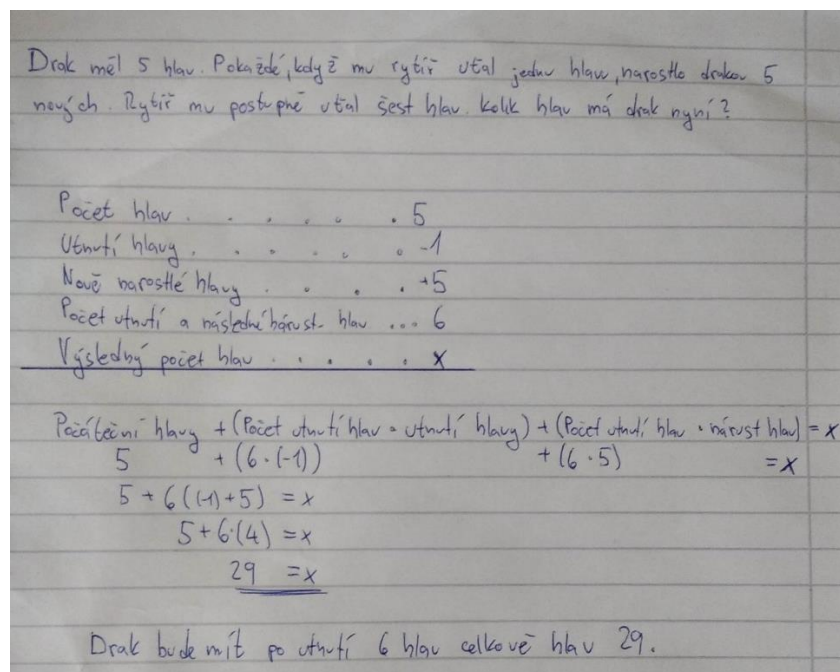 Drak měl 5 hlav. Pokaždé, když mu rytíř uťal jednu hlavu, narostlo drakov 5
nových. Rytíř mu postupně uťal šest hlav. Kolik hlav má drak nyní?
Počet hlav . . . . . . 5
Utnutí hlavy . . . . . . -1
Nově narostlé hlavy . . . . +5
Počet utnutí a následné nárust. hlav ... 6
Výsledný počet hlav . . . . . x
Počáteční hlavy + (Počet utnutí hlav · utnutí hlavy) + (Počet utnutí hlav · nárust hlav) = x
5 + (6 · (-1)) + (6 · 5) = x
5 + 6((-1)+5) = x
5 + 6·(4) = x
29 = x
Drak bude mít po utnutí 6 hlav celkově hlav 29.